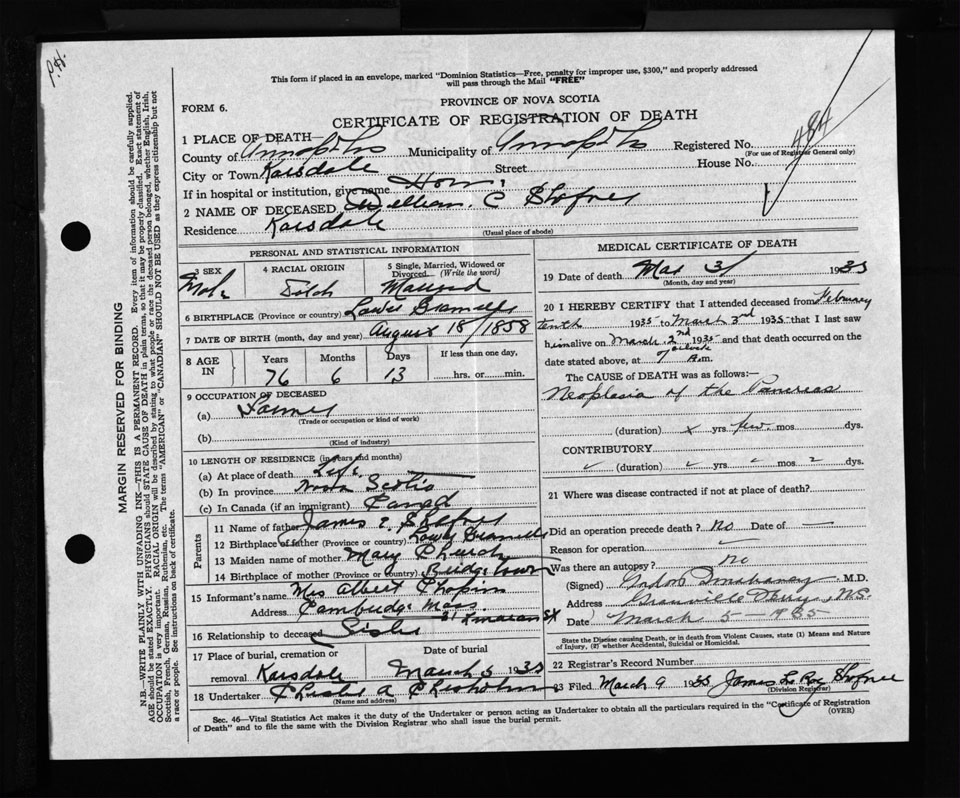 P.H.
This form if placed in an envelope, marked "Dominion Statistics—Free, penalty for improper use, $300," and properly addressed
will pass through the Mail "FREE"
FORM 6.
PROVINCE OF NOVA SCOTIA
CERTIFICATE OF REGISTRATION OF DEATH
484
1 PLACE OF DEATH—
County of Annapolis Municipality of Annapolis Registered No.
(For use of Registrar General only)
City or Town Karsdale Street House No.
If in hospital or institution, give name Home
2 NAME OF DECEASED William C Shafner
Residence Karsdale
(Usual place of abode)
PERSONAL AND STATISTICAL INFORMATION
3 SEX Male
4 RACIAL ORIGIN Dotch
5 Single, Married, Widowed or Divorced (Write the word) Married
6 BIRTHPLACE (Province or country) Lower Granville
7 DATE OF BIRTH (month, day and year) August 18/1858
8 AGE IN Years Months Days If less than one day,
76 6 13 hrs. or min.
9 OCCUPATION OF DECEASED
(a) Farmer
(Trade or occupation or kind of work)
(b)
(Kind of industry)
10 LENGTH OF RESIDENCE (in years and months)
(a) At place of death Life
(b) In province Nova Scotia
(c) In Canada (if an immigrant) Canad
Parents
11 Name of father James E Shafner
12 Birthplace of father (Province or country) Lower Granville
13 Maiden name of mother Mary Church
14 Birthplace of mother (Province or country) Bridgetown
15 Informant's name Mrs Albert
Address Cambridge Mass
St
16 Relationship to deceased Sister
17 Place of burial, cremation or removal Karsdale
Date of burial March 5 1935
18 Undertaker A Chisholm
(Name and address)
MEDICAL CERTIFICATE OF DEATH
19 Date of death Mar 3/ 1935
(Month, day and year)
20 I HEREBY CERTIFY that I attended deceased from February
tenth 1935 to March 3rd 1935 that I last saw
him alive on March 2nd 1935 and that death occurred on the
date stated above, at 7 o'clock A.m.
The CAUSE OF DEATH was as follows:
Neoplasia of the Pancreas
(duration) x yrs few mos. dys.
CONTRIBUTORY
(duration) yrs mos dys.
21 Where was disease contracted if not at place of death?
Did an operation precede death? no Date of —
Reason for operation
Was there an autopsy? no
(Signed) M.D.
Address Granville Ferry, N.S.
Date March 5 1935
State the Disease causing Death, or in death from Violent Causes, state (1) Means and Nature
of Injury, (2) whether Accidental, Suicidal or Homicidal.
22 Registrar's Record Number
23 Filed March 9 1935 James LeRoy Shafner
(Division Registrar)
Sec. 46—Vital Statistics Act makes it the duty of the Undertaker or person acting as Undertaker to obtain all the particulars required in the "Certificate of Registration
of Death" and to file the same with the Division Registrar who shall issue the burial permit.
(OVER)
MARGIN RESERVED FOR BINDING
N.B.—WRITE PLAINLY WITH UNFADING INK—THIS IS A PERMANENT RECORD. Every item of information should be carefully supplied.
AGE should be stated EXACTLY. PHYSICIANS should STATE CAUSE OF DEATH in plain terms, so that it may be properly classified. Exact statement of
OCCUPATION is very important. RACIAL ORIGIN will be described by stating to what people or race the deceased person belonged, whether English, Irish,
Scottish, French, German, Russian, Ruthenian, etc. The terms "AMERICAN" or "CANADIAN" SHOULD NOT BE USED as they express citizenship but not
a race or people. See instructions on back of certificate.